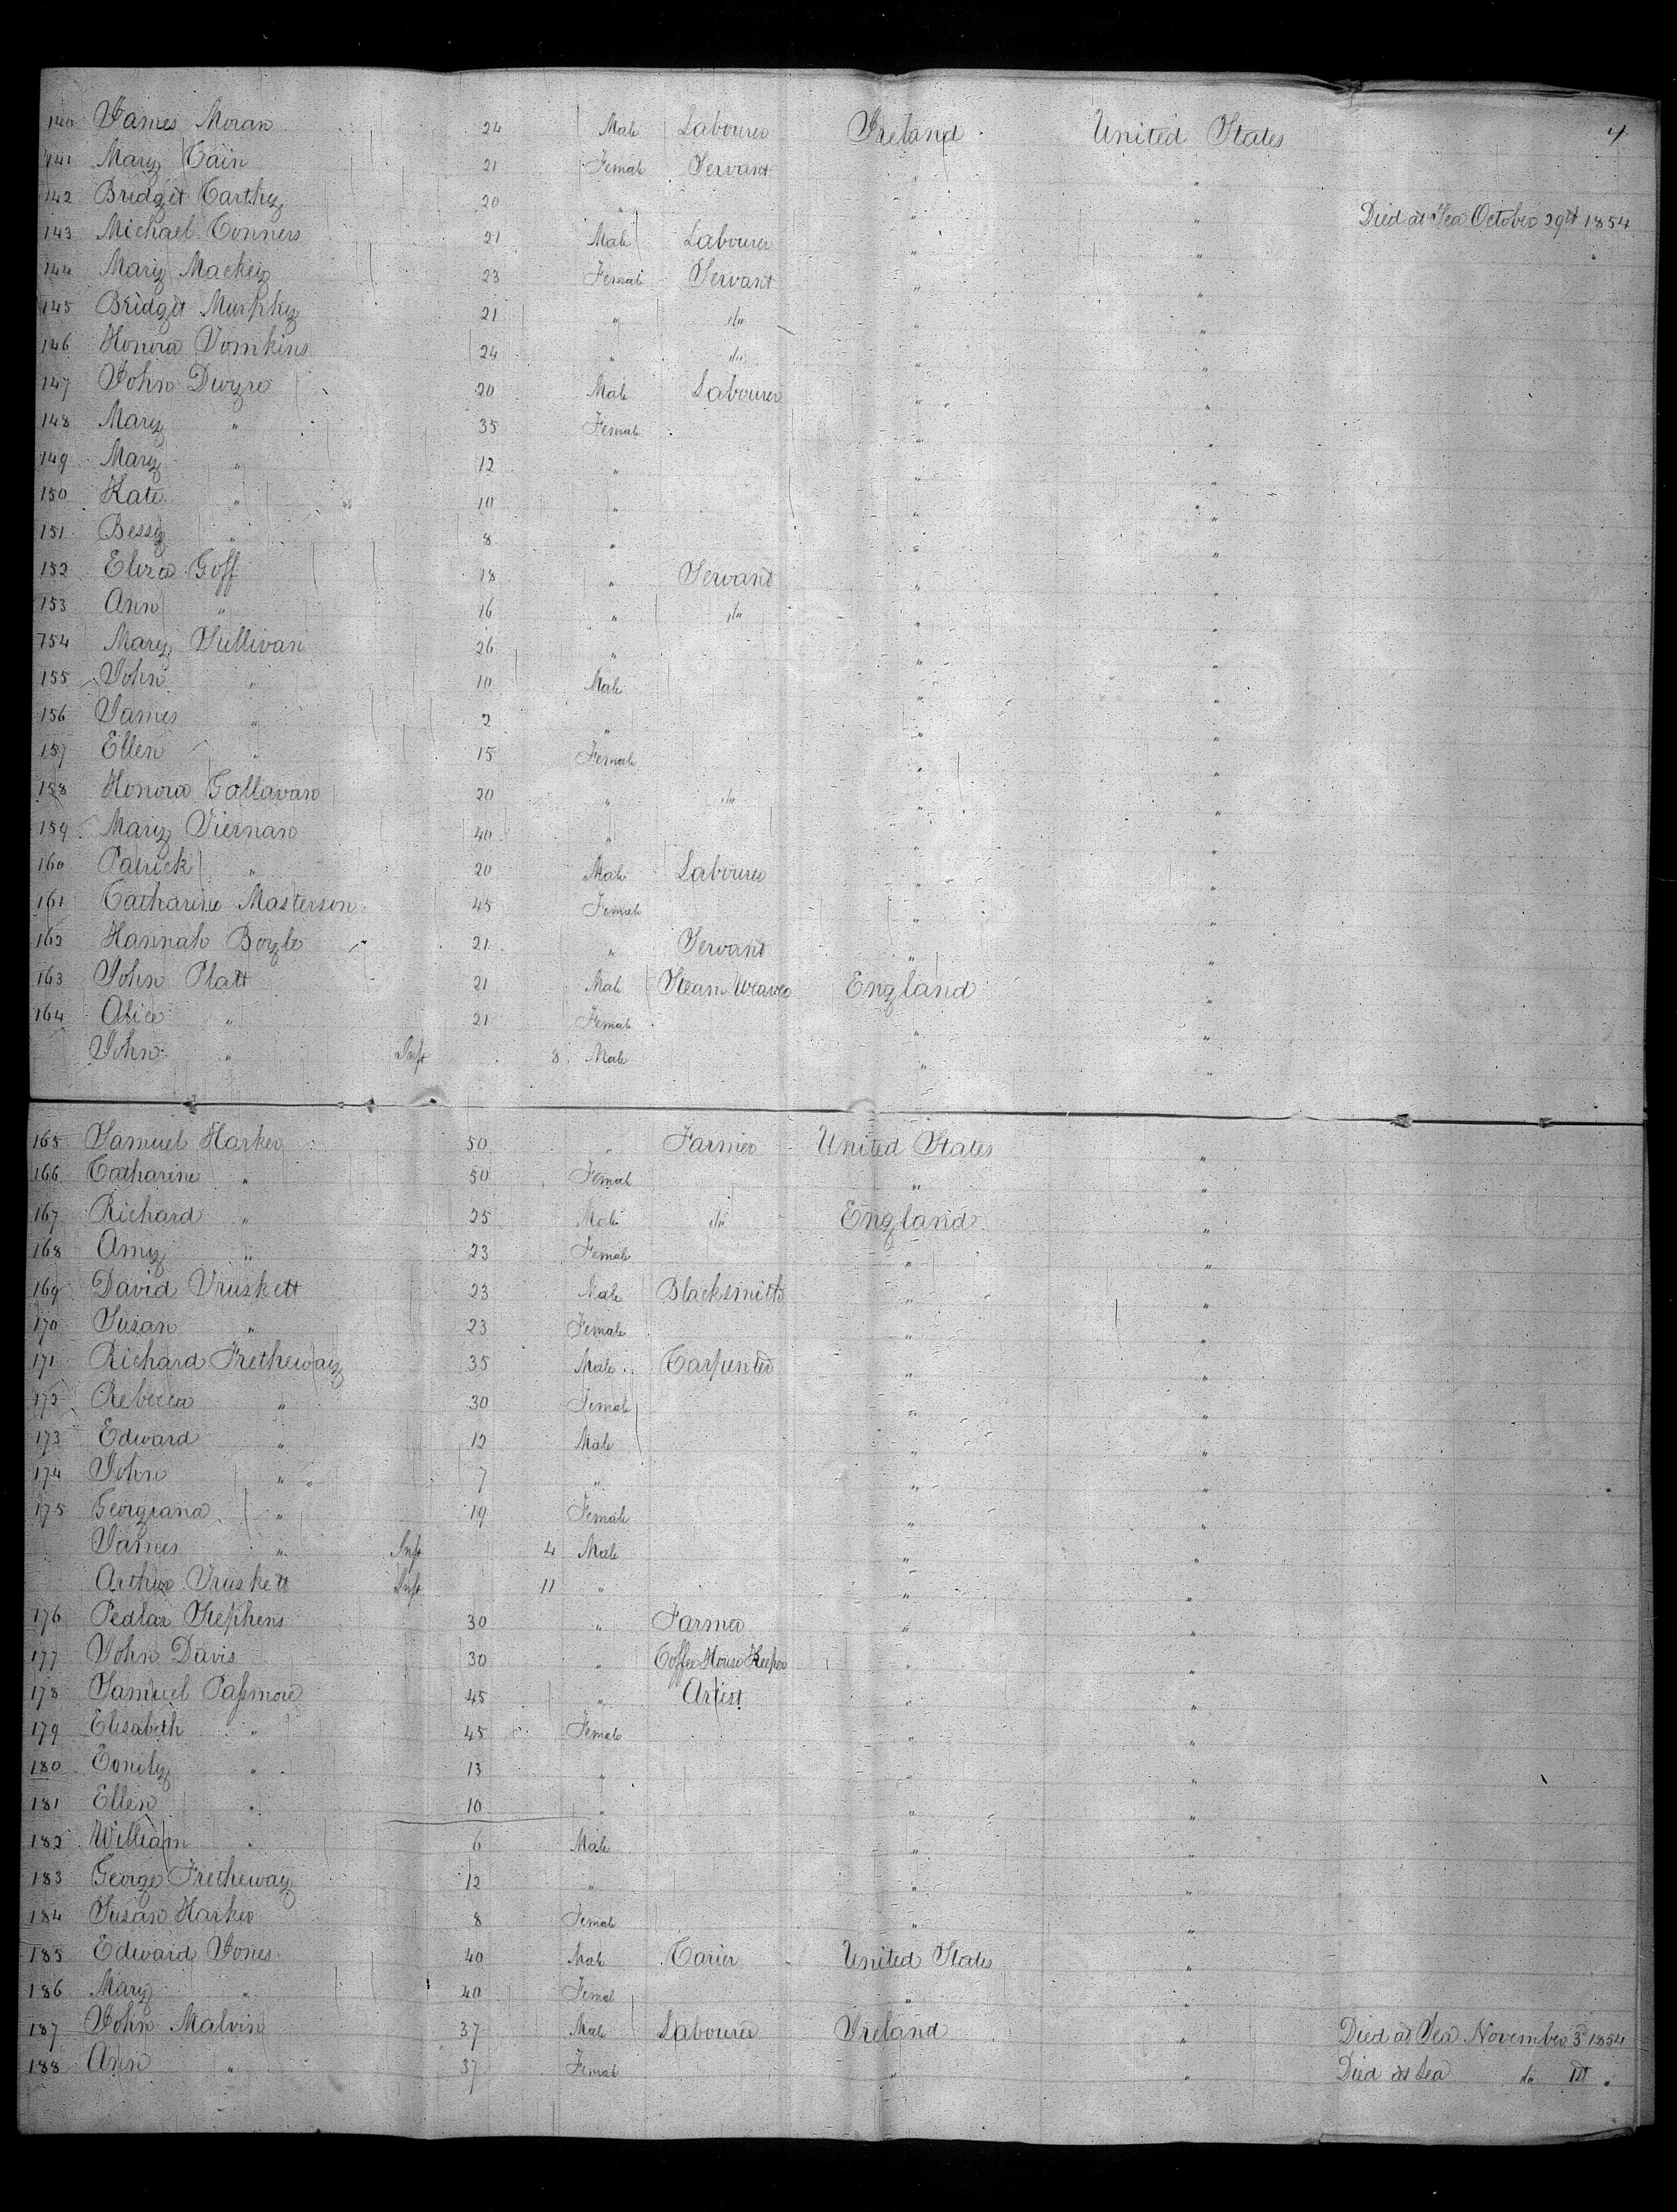 4
140 James Moran 24 Male Labourer Ireland United States
141 Mary Cain 21 Female Servant " "
142 Bridget Carthy 20 " " " Died at Sea October 29th 1854
143 Michael Conners 21 Male Labourer " "
144 Mary Mackey 23 Female Servant " "
145 Bridget Murphy 21 " do " "
146 Honora Tomkins 24 " do " "
147 John Dwyre 20 Male Labourer " "
148 Mary " 35 Female " "
149 Mary " 12 " " "
150 Kate " 10 " " "
151 Bessy " 8 " " "
152 Eliza Goff 18 " Servant " "
153 Ann " 16 " do " "
154 Mary Sullivan 26 " " "
155 John " 10 Male " "
156 James " 2 " " "
157 Ellen " 15 Female " "
158 Honora Gallavan 20 " do " "
159 Mary Tiernan 40 " " "
160 Patrick " 20 Male Labourer " "
161 Catharine Masterson 45 Female " "
162 Hannah Boyle 21 " Servant " "
163 John Platt 21 Male Steam Weaver England "
164 Alice " 21 Female " "
John " Inft 8 Male " "
165 Samuel Harker 50 " Farmer United States "
166 Catharine " 50 Female " "
167 Richard " 25 Male do England "
168 Amy " 23 Female " "
169 David Truskett 23 Male Blacksmith " "
170 Susan " 23 Female " "
171 Richard Fretheway 35 Male Carpenter " "
172 Rebecca " 30 Female " "
173 Edward " 12 Male " "
174 John " 7 " " "
175 Georgiana " 19 Female " "
James " Inft 4 Male " "
Arthur Truskett Inft 11 " " "
176 Pedlar Stephens 30 " Farmer " "
177 John Davis 30 " Coffee House Keeper " "
178 Samuel Passmore 45 " Artist " "
179 Elisabeth " 45 Female " "
180 Emily " 13 " " "
181 Ellen " 10 " " "
182 William " 6 Male " "
183 George Fretheway 12 " " "
184 Susan Harker 8 Female " "
185 Edward Jones 40 Male Carier United States "
186 Mary " 40 Femal " "
187 John Malvin 37 Male Labourer Ireland " Died at Sea November 3d 1854
188 Ann " 37 Female " " Died at Sea do 1st "